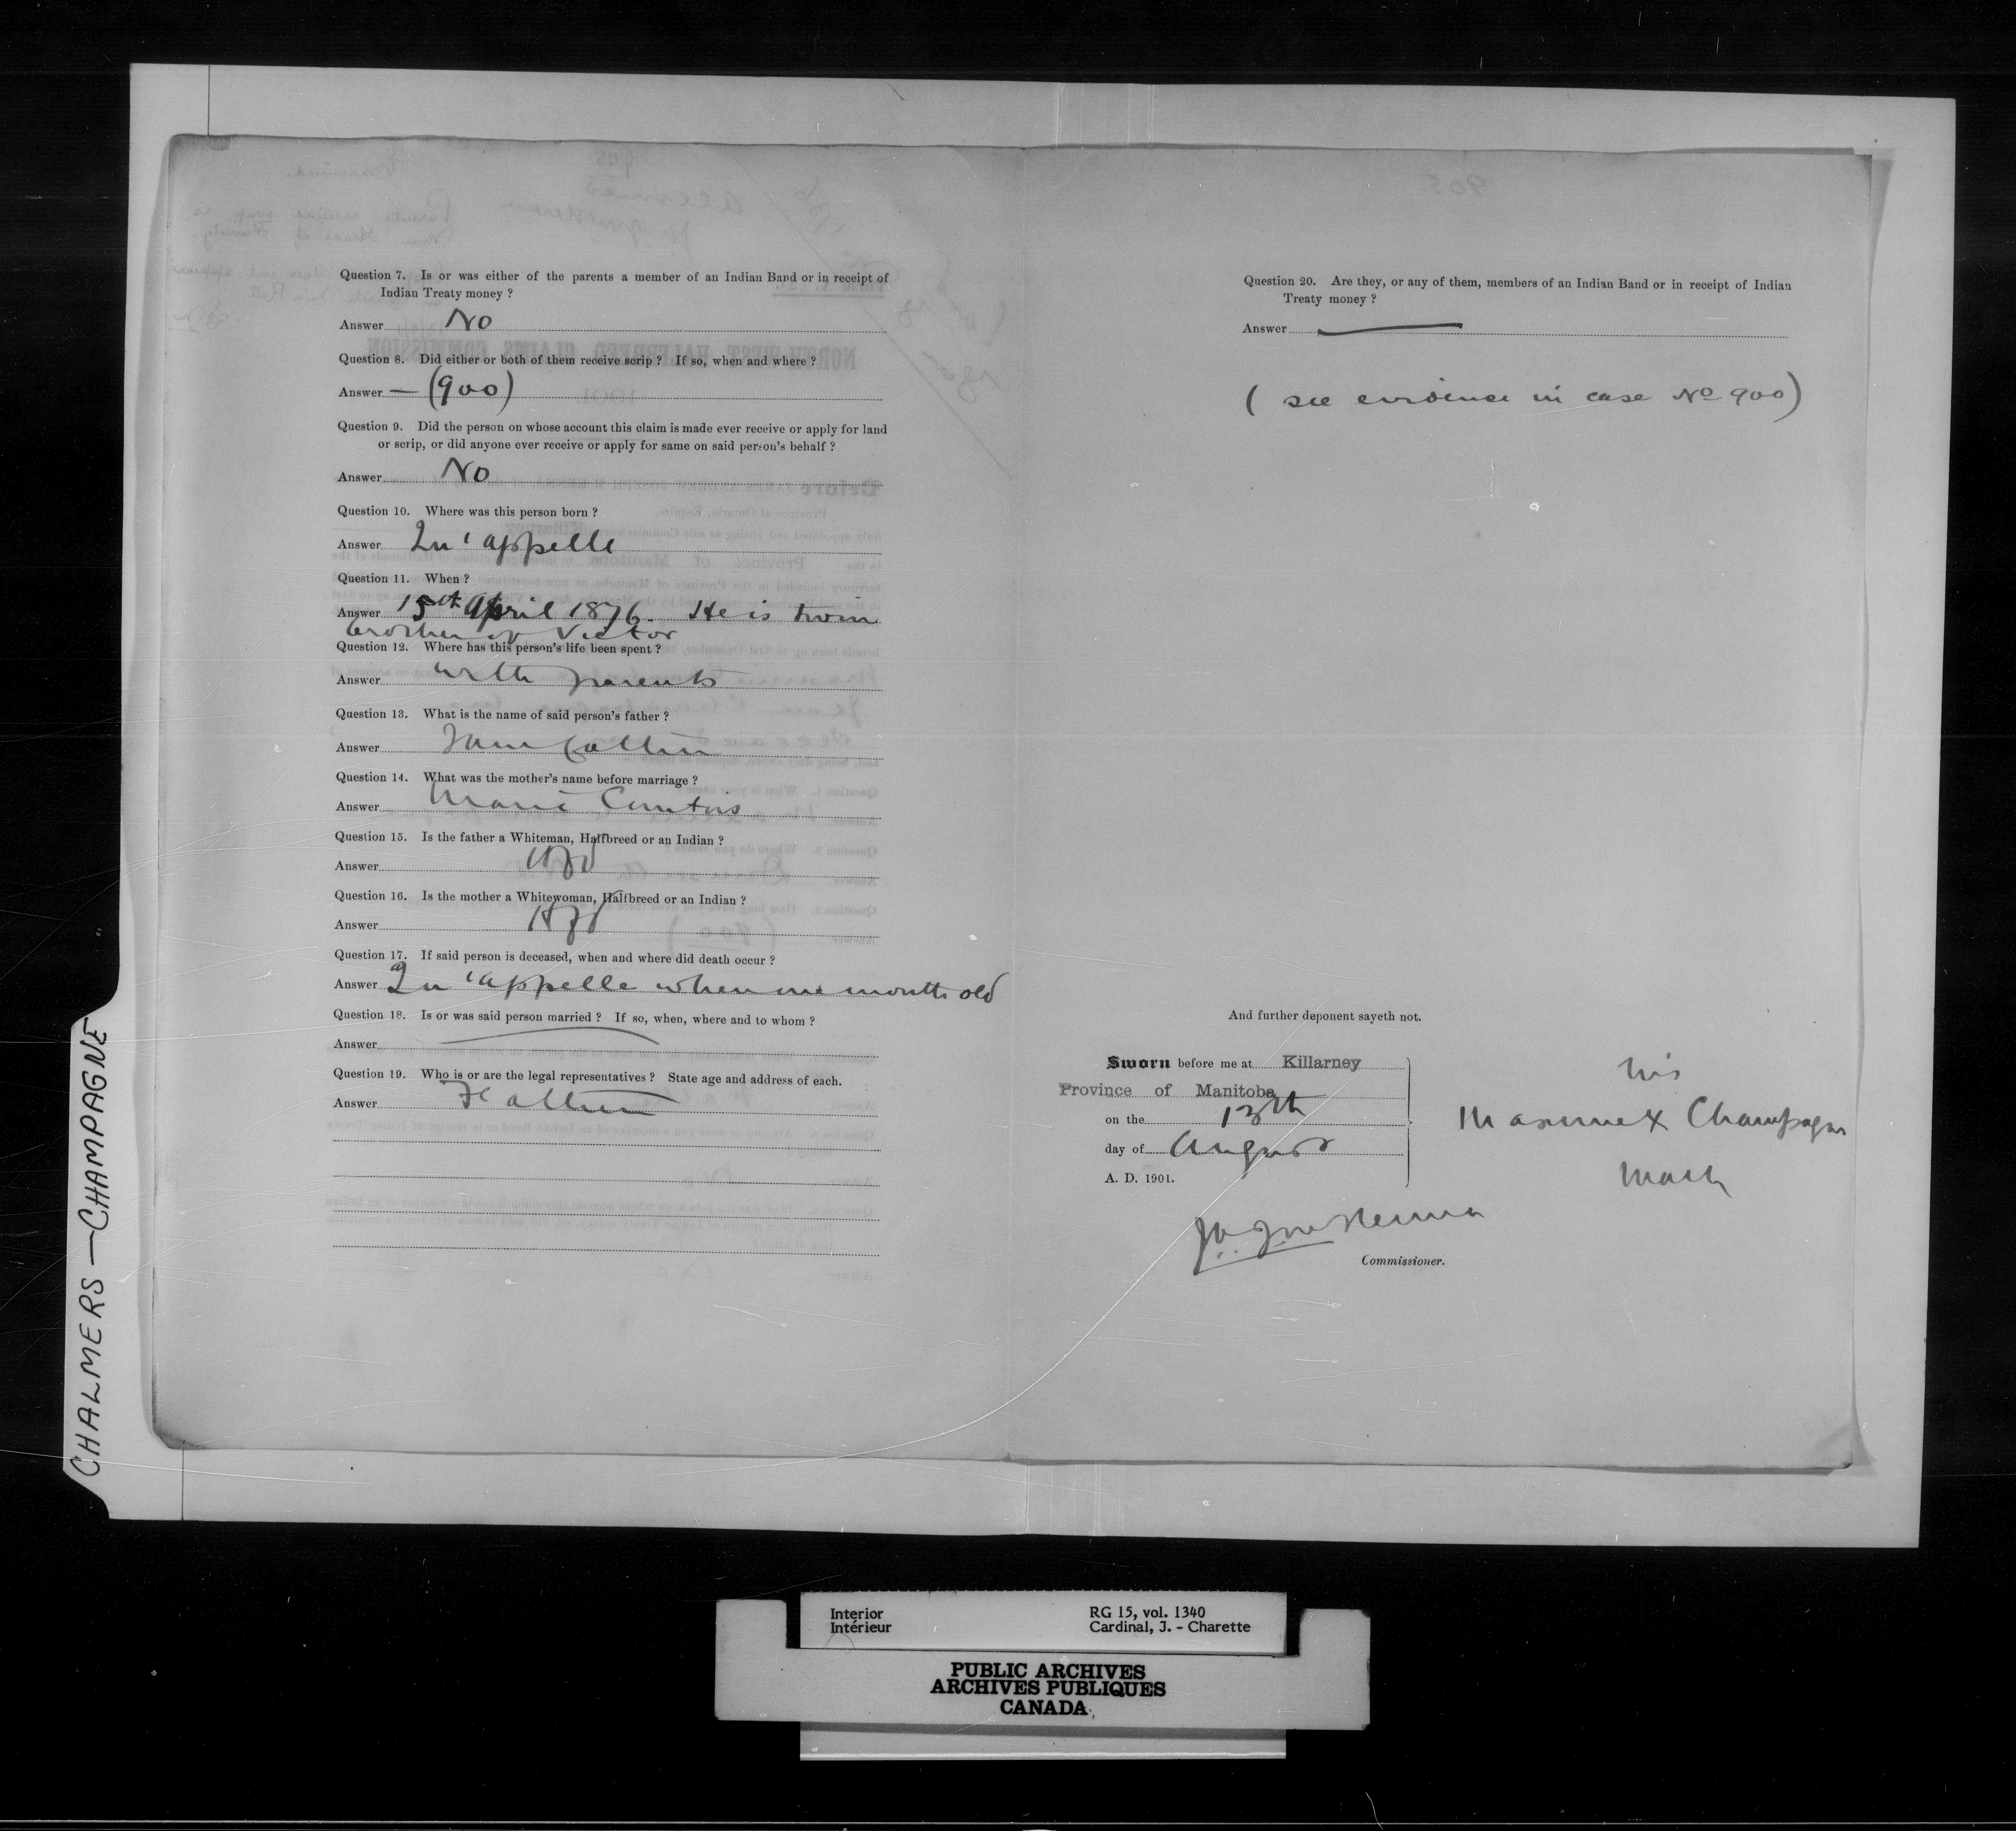 Question 7. Is or was either of the parents a member of an Indian Band or in receipt of
Indian Treaty money ?
Answer No
Question 8. Did either or both of them receive scrip ? If so, when and where ?
Answer — (900)
Question 9. Did the person on whose account this claim is made ever receive or apply for land
or scrip, or did anyone ever receive or apply for same on said person's behalf ?
Answer No
Question 10. Where was this person born ?
Answer Qu'appelle
Question 11. When ?
Answer 15th April 1876. He is twin
brother of Victor
Question 12. Where has this person's life been spent ?
Answer with parents
Question 13. What is the name of said person's father ?
Answer
Question 14. What was the mother's name before marriage ?
Answer Marie
Question 15. Is the father a Whiteman, Halfbreed or an Indian ?
Answer
Question 16. Is the mother a Whitewoman, Halfbreed or an Indian ?
Answer
Question 17. If said person is deceased, when and where did death occur ?
Answer Qu'appelle when one month old
Question 18. Is or was said person married ? If so, when, where and to whom ?
Answer —
Question 19. Who is or are the legal representatives ? State age and address of each.
Answer Father
Question 20. Are they, or any of them, members of an Indian Band or in receipt of Indian
Treaty money ?
Answer —
( see evidence in case No 900)
And further deponent sayeth not.
Sworn before me at Killarney
Province of Manitoba
on the 13th
day of August
A. D. 1901.
his
X Champagne
mark
Commissioner.
CHALMERS — CHAMPAGNE
Interior
Intérieur
RG 15, vol. 1340
Cardinal, J. - Charette
PUBLIC ARCHIVES
ARCHIVES PUBLIQUES
CANADA